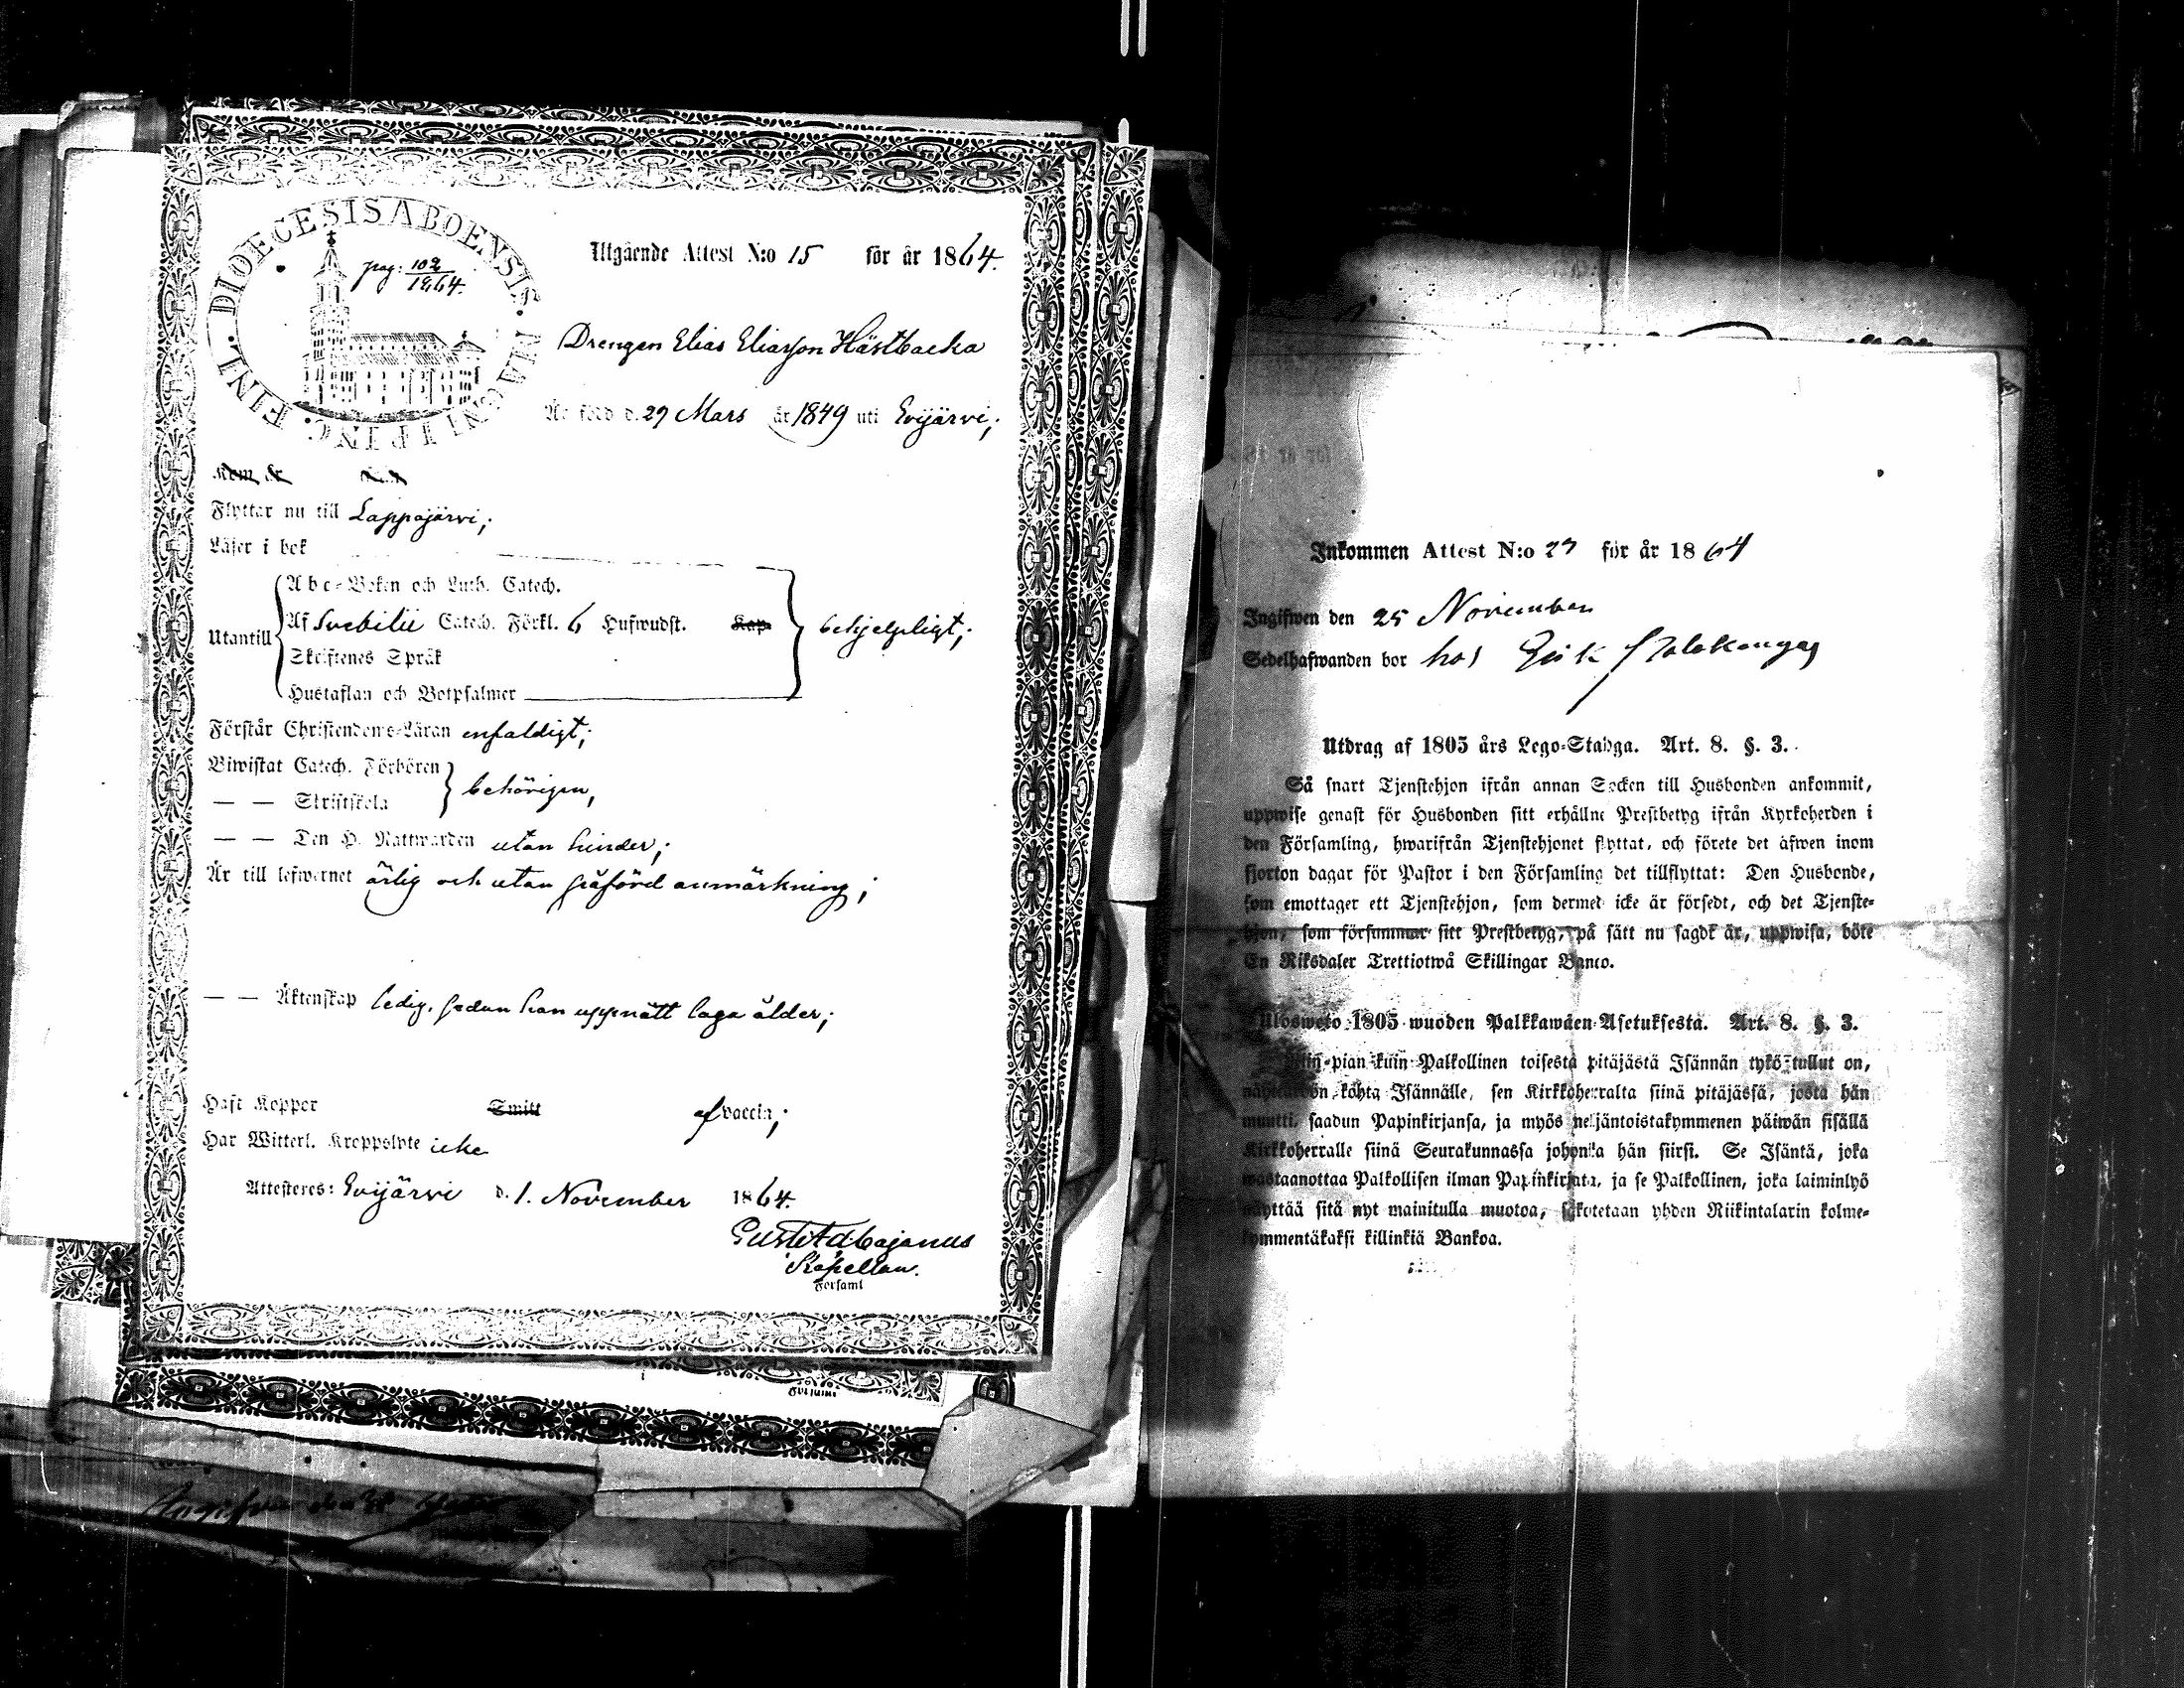 DIOECESIS ABOENSIS. MAGNI PRINC. FINL.
pag: 102/1864.
Utgående Attest N:o 15 för år 1864.
Drengen Elias Eliasson Hästbacka
Är född d. 29 Mars år 1849 uti Evijärvi;
Flyttar nu till Lappajärvi;
Läser i bok
Utantill
Abc-Boken och Luth. Catech.
Af Svebilii Catech. Förkl. 6 Hufwudst. Kap.
Skriftenes Språk
Hustaflan och Botpsalmer
behjelpligt;
Förstår Christendoms-Läran enfaldigt;
Biwistat Catech. Förhören
— — Skriftskola
behörigen,
— — Den H. Nattwarden utan hinder;
Är till lefwernet ärlig och utan påförd anmärkning;
— — Äktenskap ledig, sedan han uppnått laga ålder;
Haft Koppor Smitt af vaccin;
Har Witterl. Kroppslyte icke
Attesteres: Evijärvi d. 1. November 1864.
Cajanus
Kapellan.
Församl
Inkommen Attest N:o 27 för år 1864
Ingifwen den 25 November
Sedelhafwanden bor hos Erik
Utdrag af 1805 års Lego-Stadga. Art. 8. §. 3.
Så snart Tjenstehjon ifrån annan Socken till Husbonden ankommit,
uppwise genast för Husbonden sitt erhållne Prestbetyg ifrån Kyrkoherden i
den Församling, hwarifrån Tjenstehjonet flyttat, och förete det äfwen inom
fjorton dagar för Pastor i den Församling det tillflyttat: Den Husbonde,
som emottager ett Tjenstehjon, som dermed icke är försedt, och det Tjenste-
hjon, som försummar sitt Prestbetyg, på sätt nu sagdt är, uppwisa, böte
En Riksdaler Trettiotwå Skillingar Banco.
Ulosweto 1805 wuoden Palkkawäen-Asetuksesta. Art. 8. §. 3.
Niin-pian kuin Palkollinen toisesta pitäjästä Isännän tykö tullut on,
näyttäköön kohta Isännälle, sen Kirkkoherralta siinä pitäjässä, josta hän
muutti, saadun Papinkirjansa, ja myös neljäntoistakymmenen päiwän sisällä
Kirkkoherralle siinä Seurakunnassa johonka hän siirsi. Se Isäntä, joka
wastaanottaa Palkollisen ilman Papinkirjata, ja se Palkollinen, joka laiminlyö
näyttää sitä nyt mainitulla muotoa, sakotetaan yhden Riikintalarin kolme-
kymmentäkaksi killinkiä Bankoa.